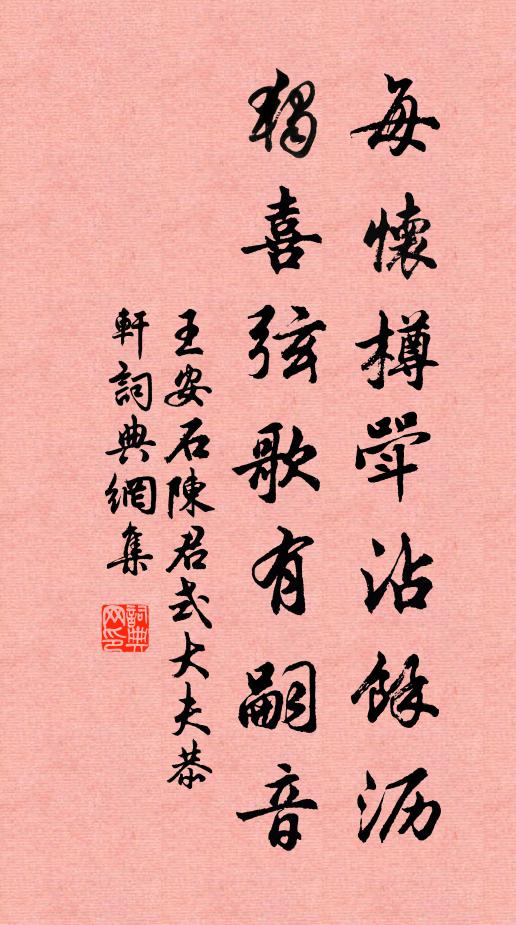 每懷樽斝沾餘沥
獨喜弦歌有嗣音
王安石陳君式大夫恭
軒詞典網集
詞典网印